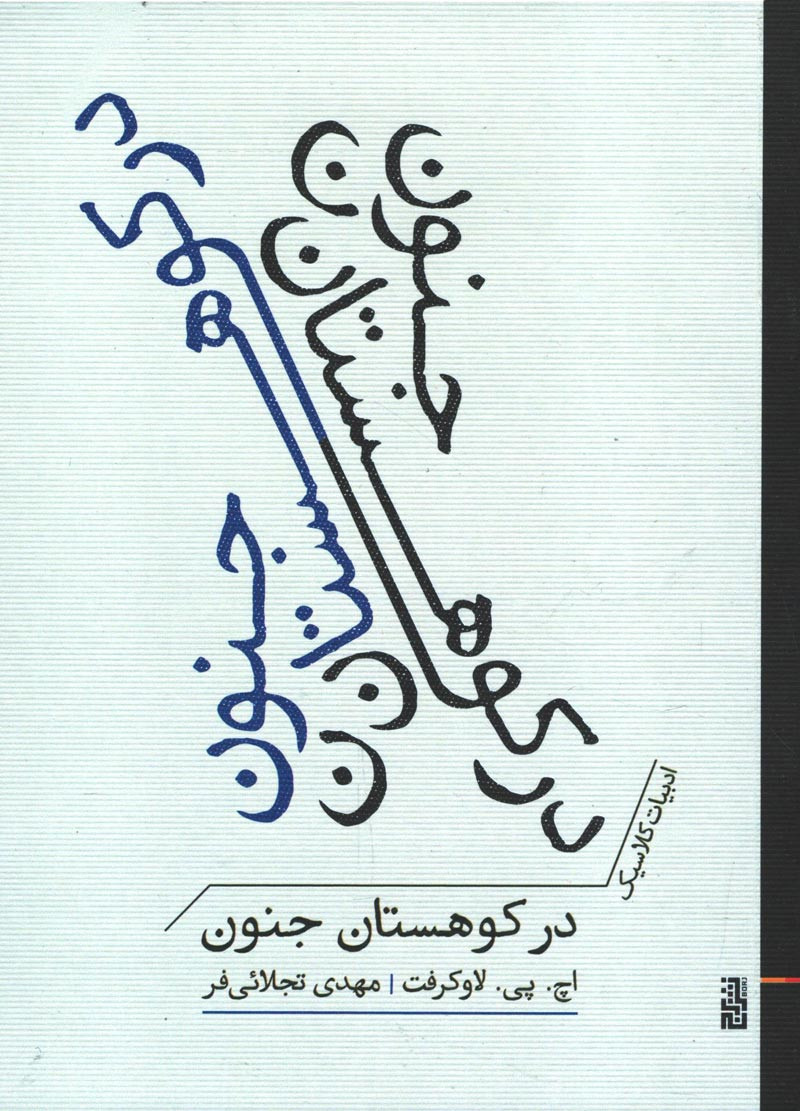 در کوهستان جنون
در کوهستان جنون
ادبیات کلاسیک
در کوهستان جنون
اچ. پی. لاوکرفت | مهدی تجلائی‌فر
نشر برج
BORJ